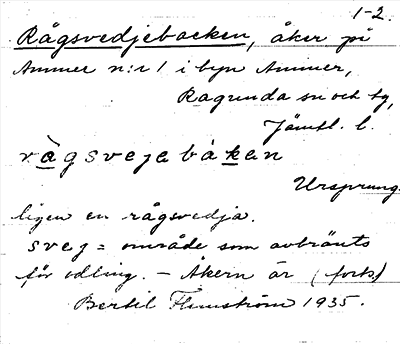 1-2.
Rågsvedjebacken, åker på
Ammer n:r 1 i byn Ammer,
Ragunda sn och tg,
Jämtl. l.
rågsvejebàkan
Ursprung-
ligen en rågsvedja.
svej = område som avbränts
för odling. — Åkern är (forts)
Bertil Flemström 1935.